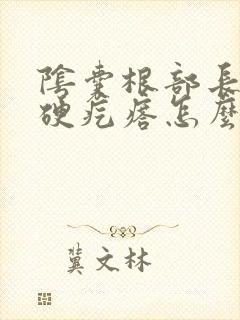 陰囊根部長
硬疙瘩怎麼
冀文林